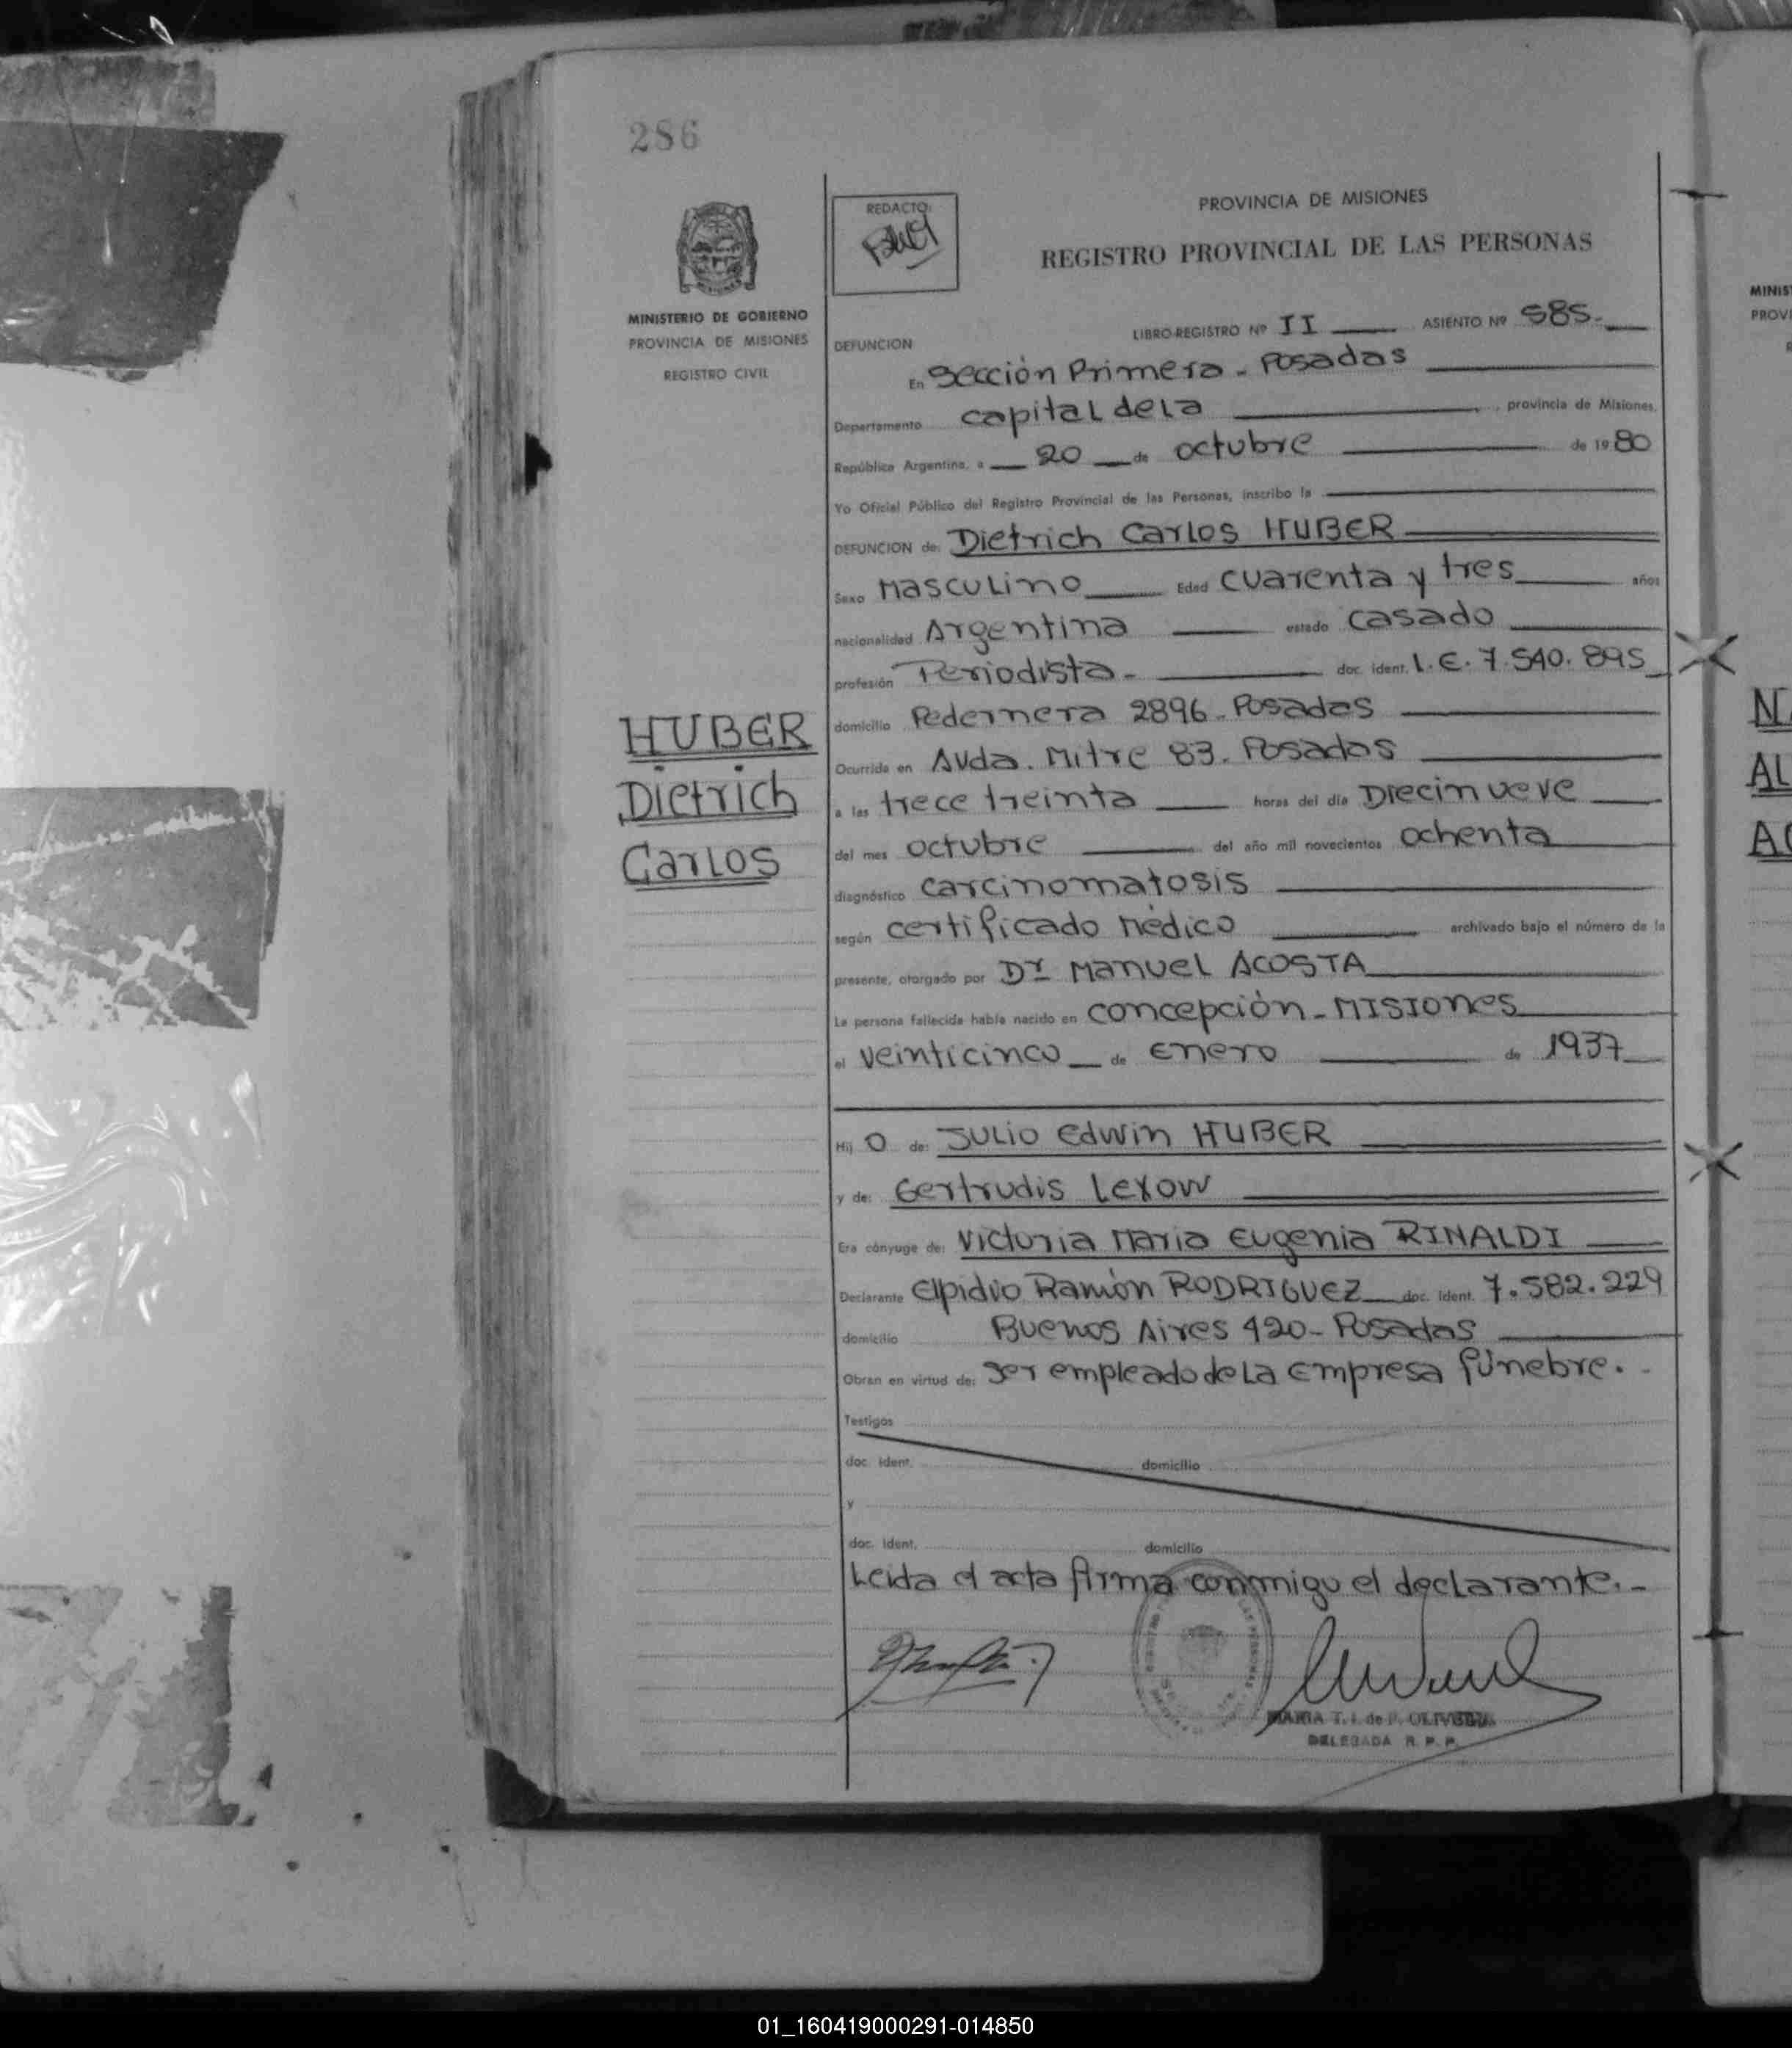 286
REDACTO:
PROVINCIA DE MISIONES
REGISTRO PROVINCIAL DE LAS PERSONAS
MINISTERIO DE GOBIERNO
PROVINCIA DE MISIONES
REGISTRO CIVIL
LIBRO-REGISTRO Nº II ASIENTO Nº 585.
DEFUNCION
En Sección Primera - Posadas
Departamento capital de la , provincia de Misiones,
República Argentina, a 20 de octubre de 1980
Yo Oficial Público del Registro Provincial de las Personas, inscribo la
DEFUNCION de: Dietrich Carlos HUBER
Sexo Masculino Edad cuarenta y tres años
nacionalidad Argentina estado casado
profesión Periodista. doc. ident. L.E. 7.540.895
HUBER
Dietrich
Carlos
domicilio Pedernera 2896 - Posadas
Ocurrida en Avda. Mitre 83. Posadas
a las trece treinta horas del día Diecinueve
del mes octubre del año mil novecientos ochenta
diagnóstico carcinomatosis
según certificado Médico archivado bajo el número de la
presente, otorgado por Dr Manuel ACOSTA
La persona fallecida había nacido en concepción - MISIONES
el veinticinco de enero de 1937
Hij o de: Julio Edwin HUBER
y de: Gertrudis Lexow
Era cónyuge de: Victoria Maria Eugenia RINALDI
Declarante Elpidio Ramón RODRIGUEZ doc. ident. 7.582.229
domicilio Buenos Aires 420 - Posadas
Obran en virtud de: ser empleado de la empresa fúnebre.
Testigos
doc. ident. domicilio
y
doc. ident. domicilio
Leida el acta firma conmigo el declarante. -
MARIA T. I. de P. OLIVERA
DELEGADA R. P. P.
MINIS
PROVI
R
N
AL
A
01_160419000291-014850